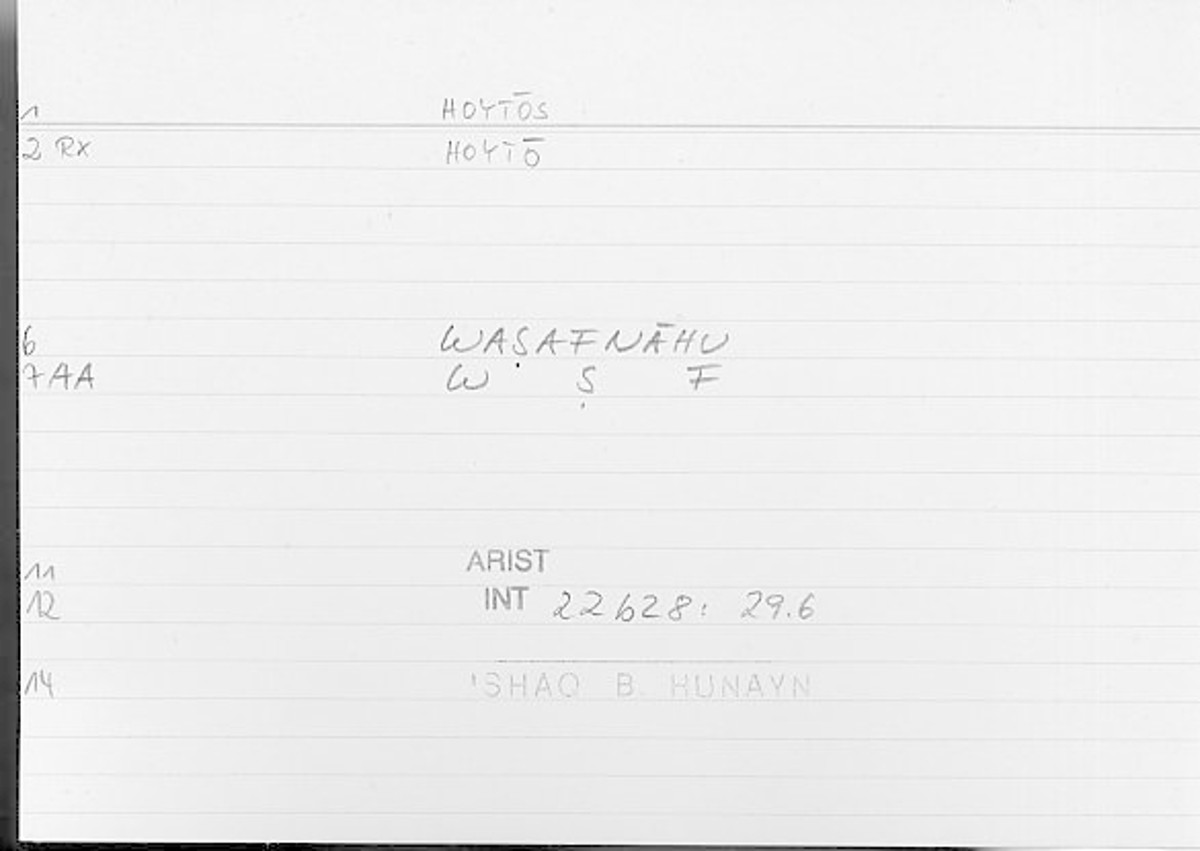 1 HOYTŌS
2 RX HOYTŌ
6 WAṢAFNĀHU
7 AA W Ṣ F
11 ARIST
12 INT 22b28: 29.6
14 'SHAQ B. HUNAYN